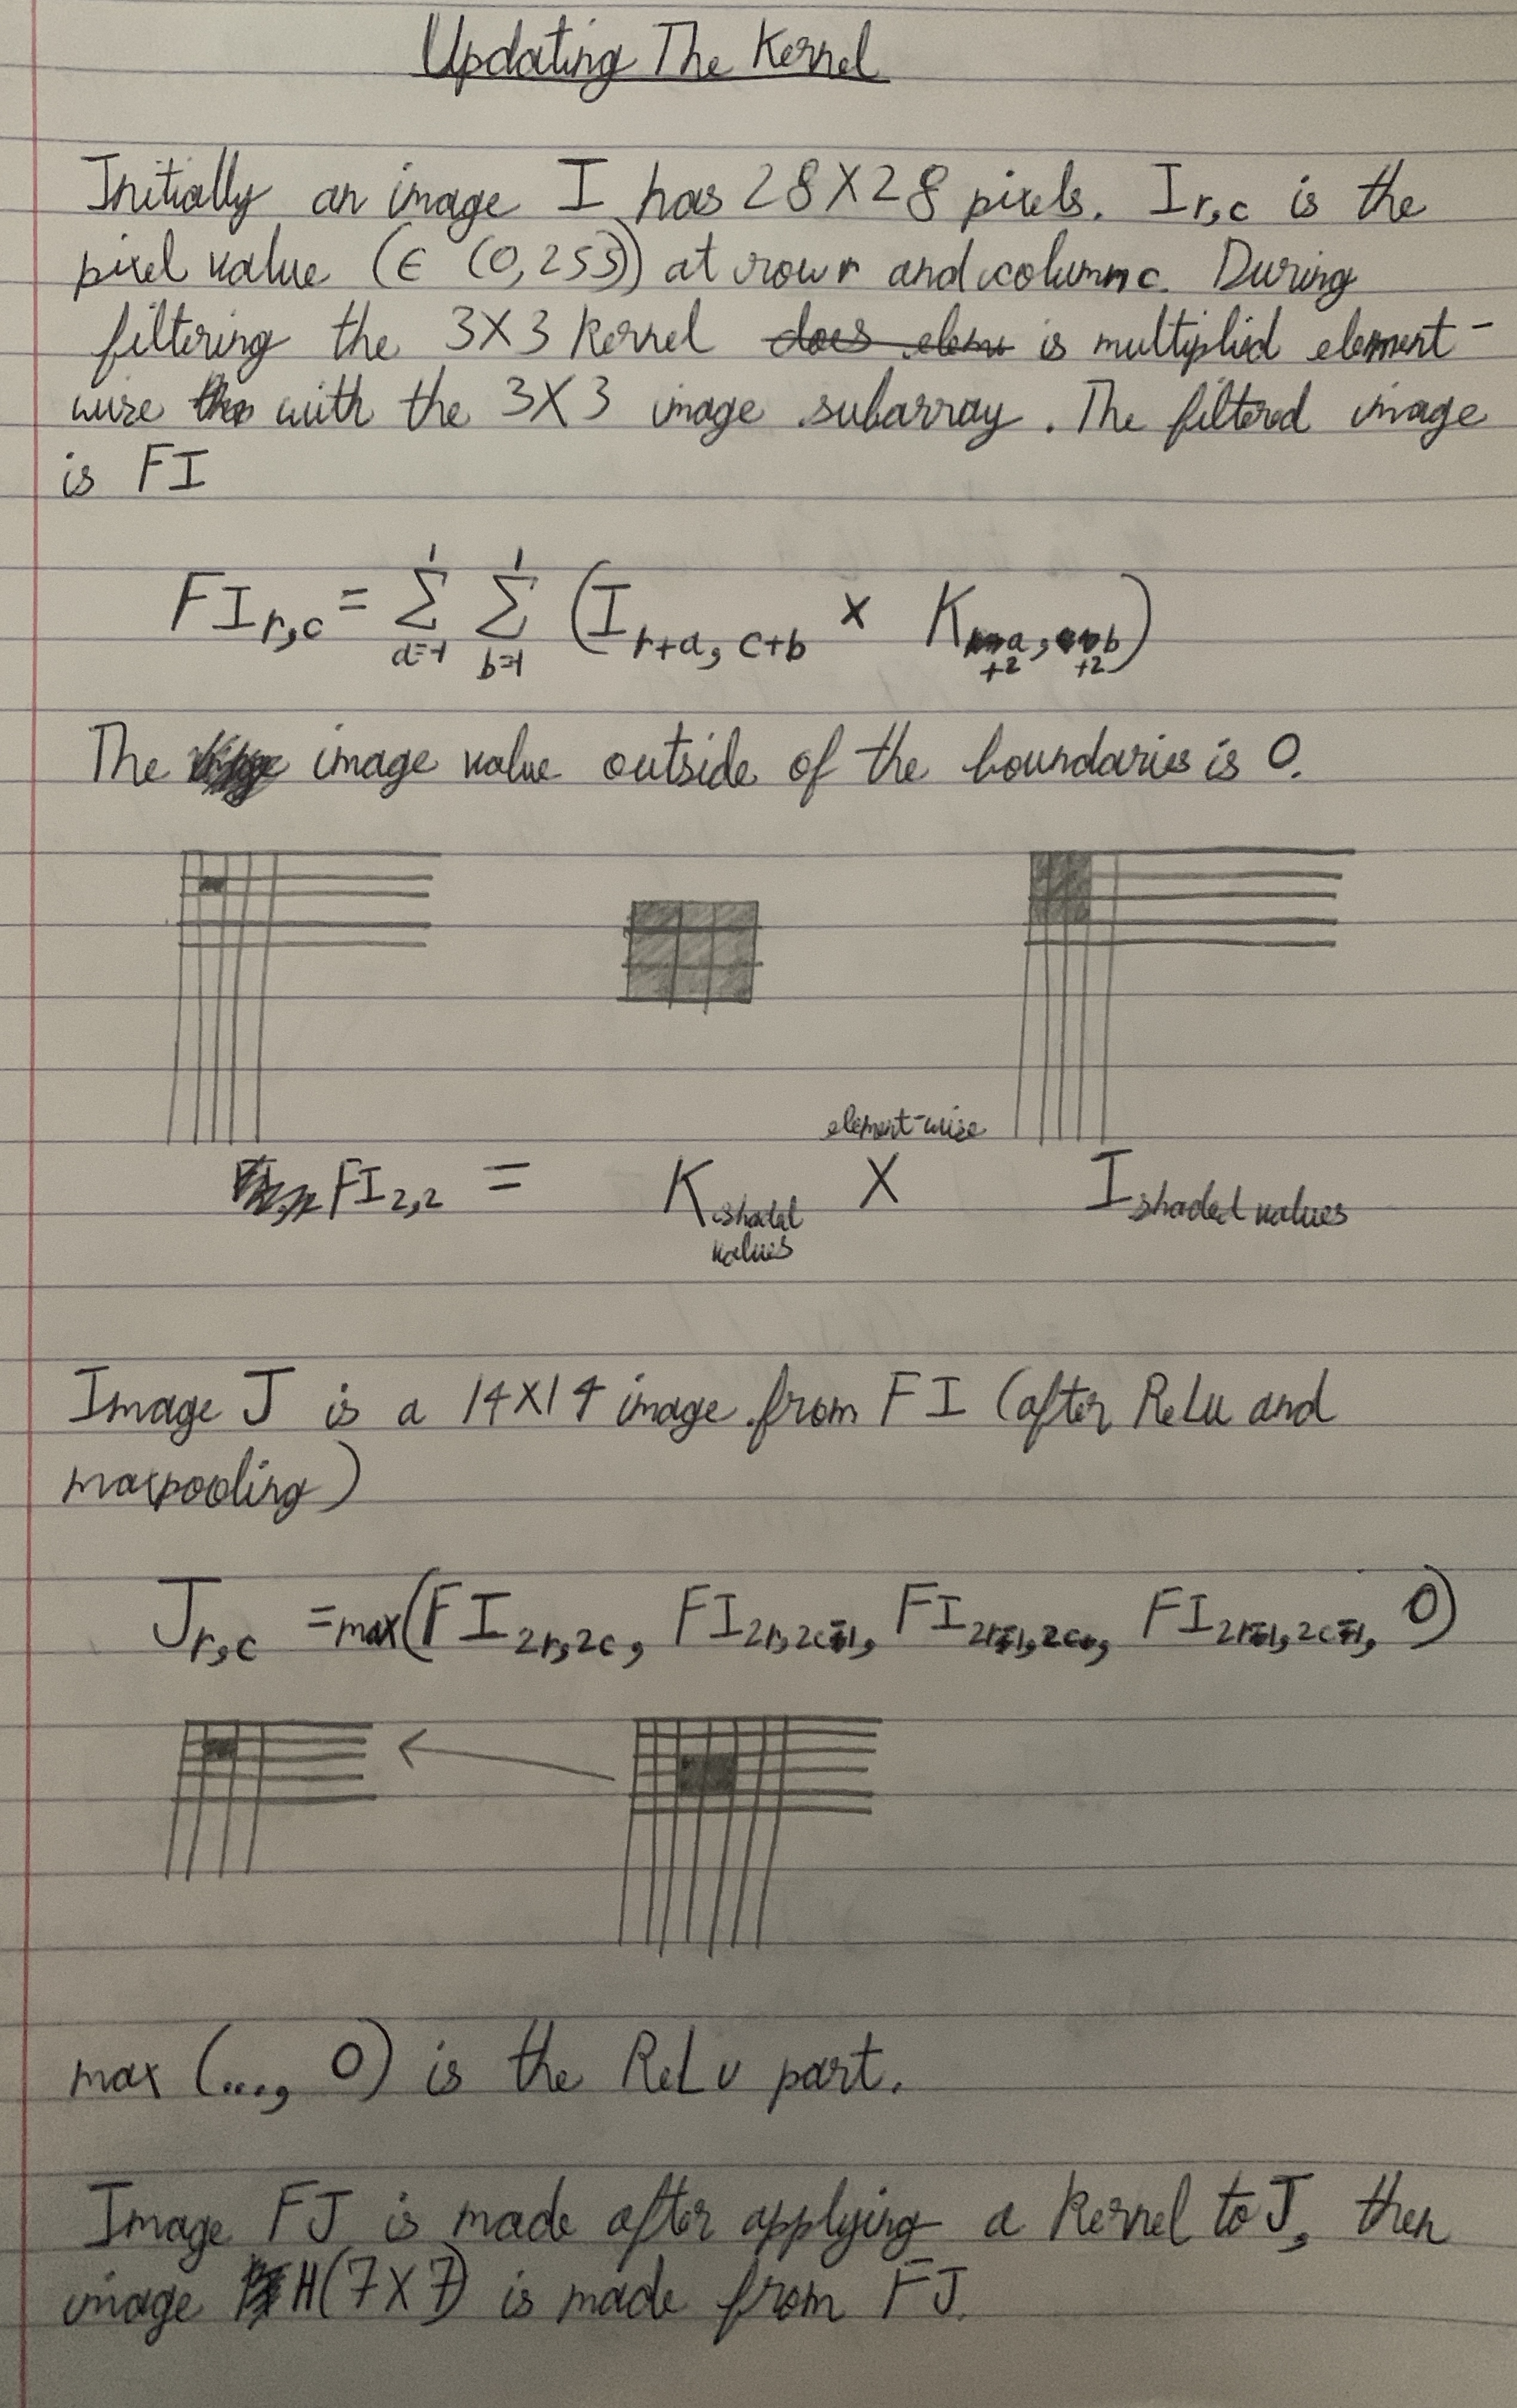 Updating The Kernel
Initially an image I has 28X28 pixels. Ir,c is the
pixel value (∈ (0,255)) at row r and column c. During
filtering the 3X3 kernel does elem is multiplied element-
wise with the 3X3 image subarray. The filtered image
is FI
FIr,c = 1∑a=-1 1∑b=-1 (Ir+a, c+b × Ka+2, b+2)
The image value outside of the boundaries is 0.
element-wise
FI2,2 = Kshaded values X Ishaded values
Image J is a 14X14 image from FI (after ReLu and
maxpooling)
Jr,c = max(FI2r,2c, FI2r,2c-1, FI2r-1,2c, FI2r-1,2c-1, 0)
max (..., 0) is the ReLu part.
Image FJ is made after applying a kernel to J, then
image H(7X7) is made from FJ.